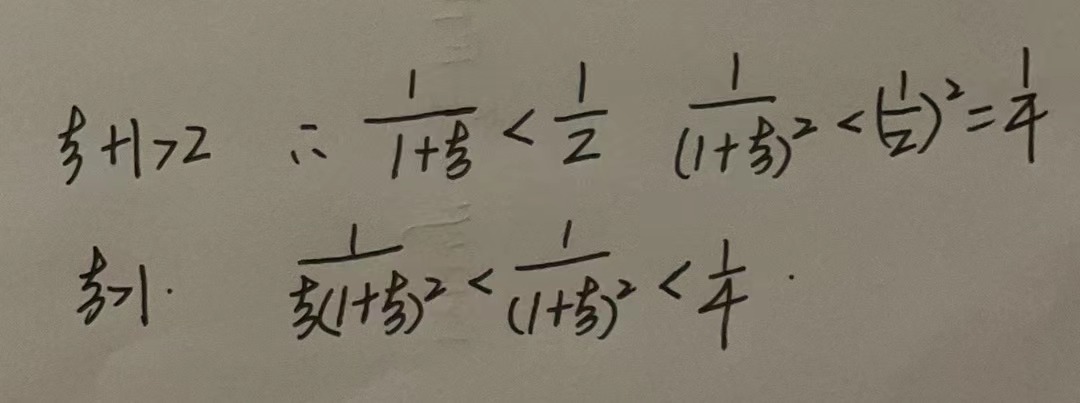 ξ+1>2 ∴ \frac{1}{1+ξ} < \frac{1}{2} \frac{1}{(1+ξ)^2} < (\frac{1}{2})^2 = \frac{1}{4}
ξ>1. \frac{1}{ξ(1+ξ)^2} < \frac{1}{(1+ξ)^2} < \frac{1}{4}.